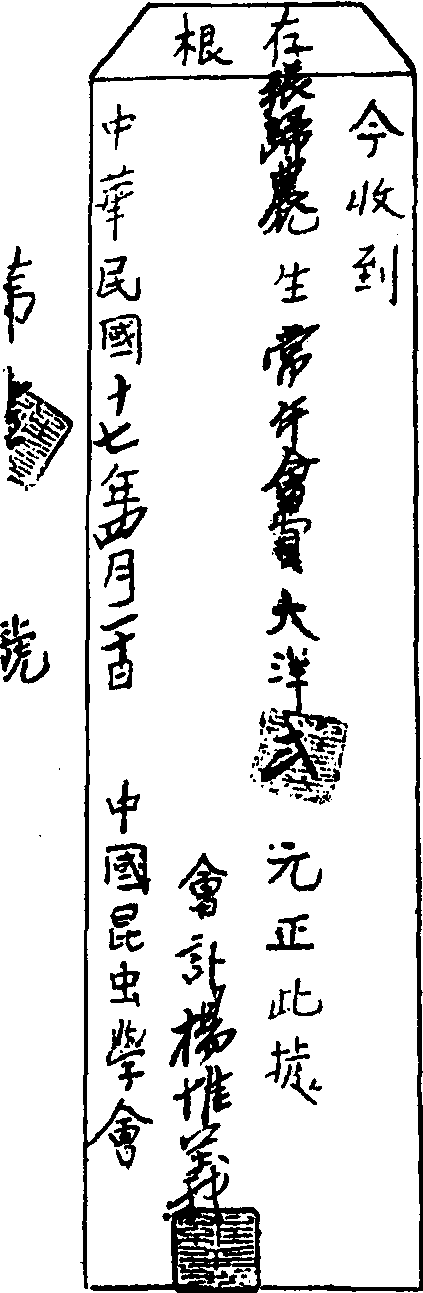 存根
今收到
張歸農 生常年會費大洋弍元正此據
會計楊惟義
中華民國十七年四月二十日 中國昆虫學會
號